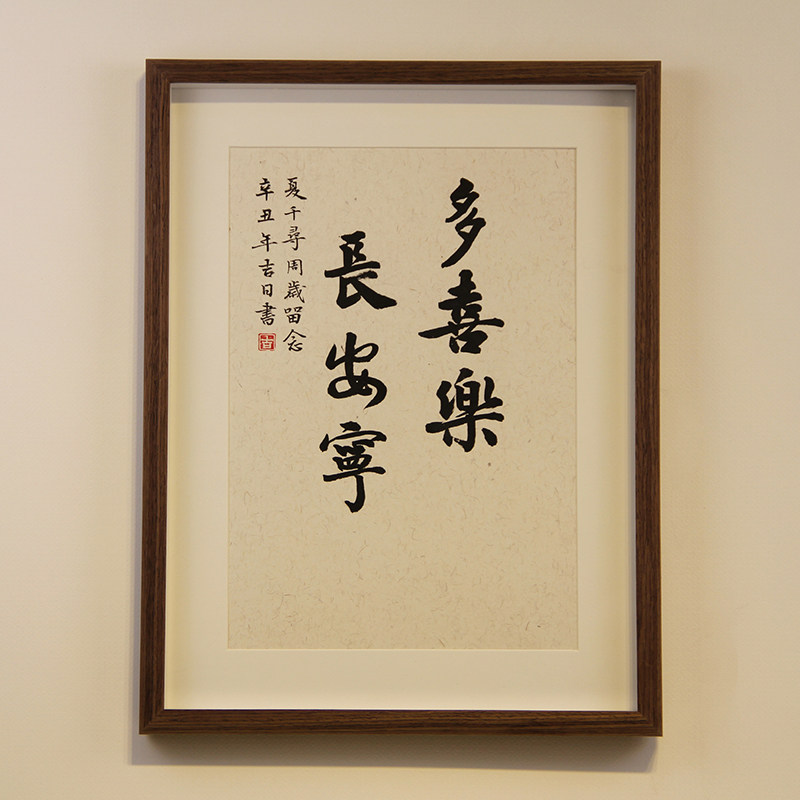 多喜樂
長安寧
夏千尋周歲留念
辛丑年吉日書